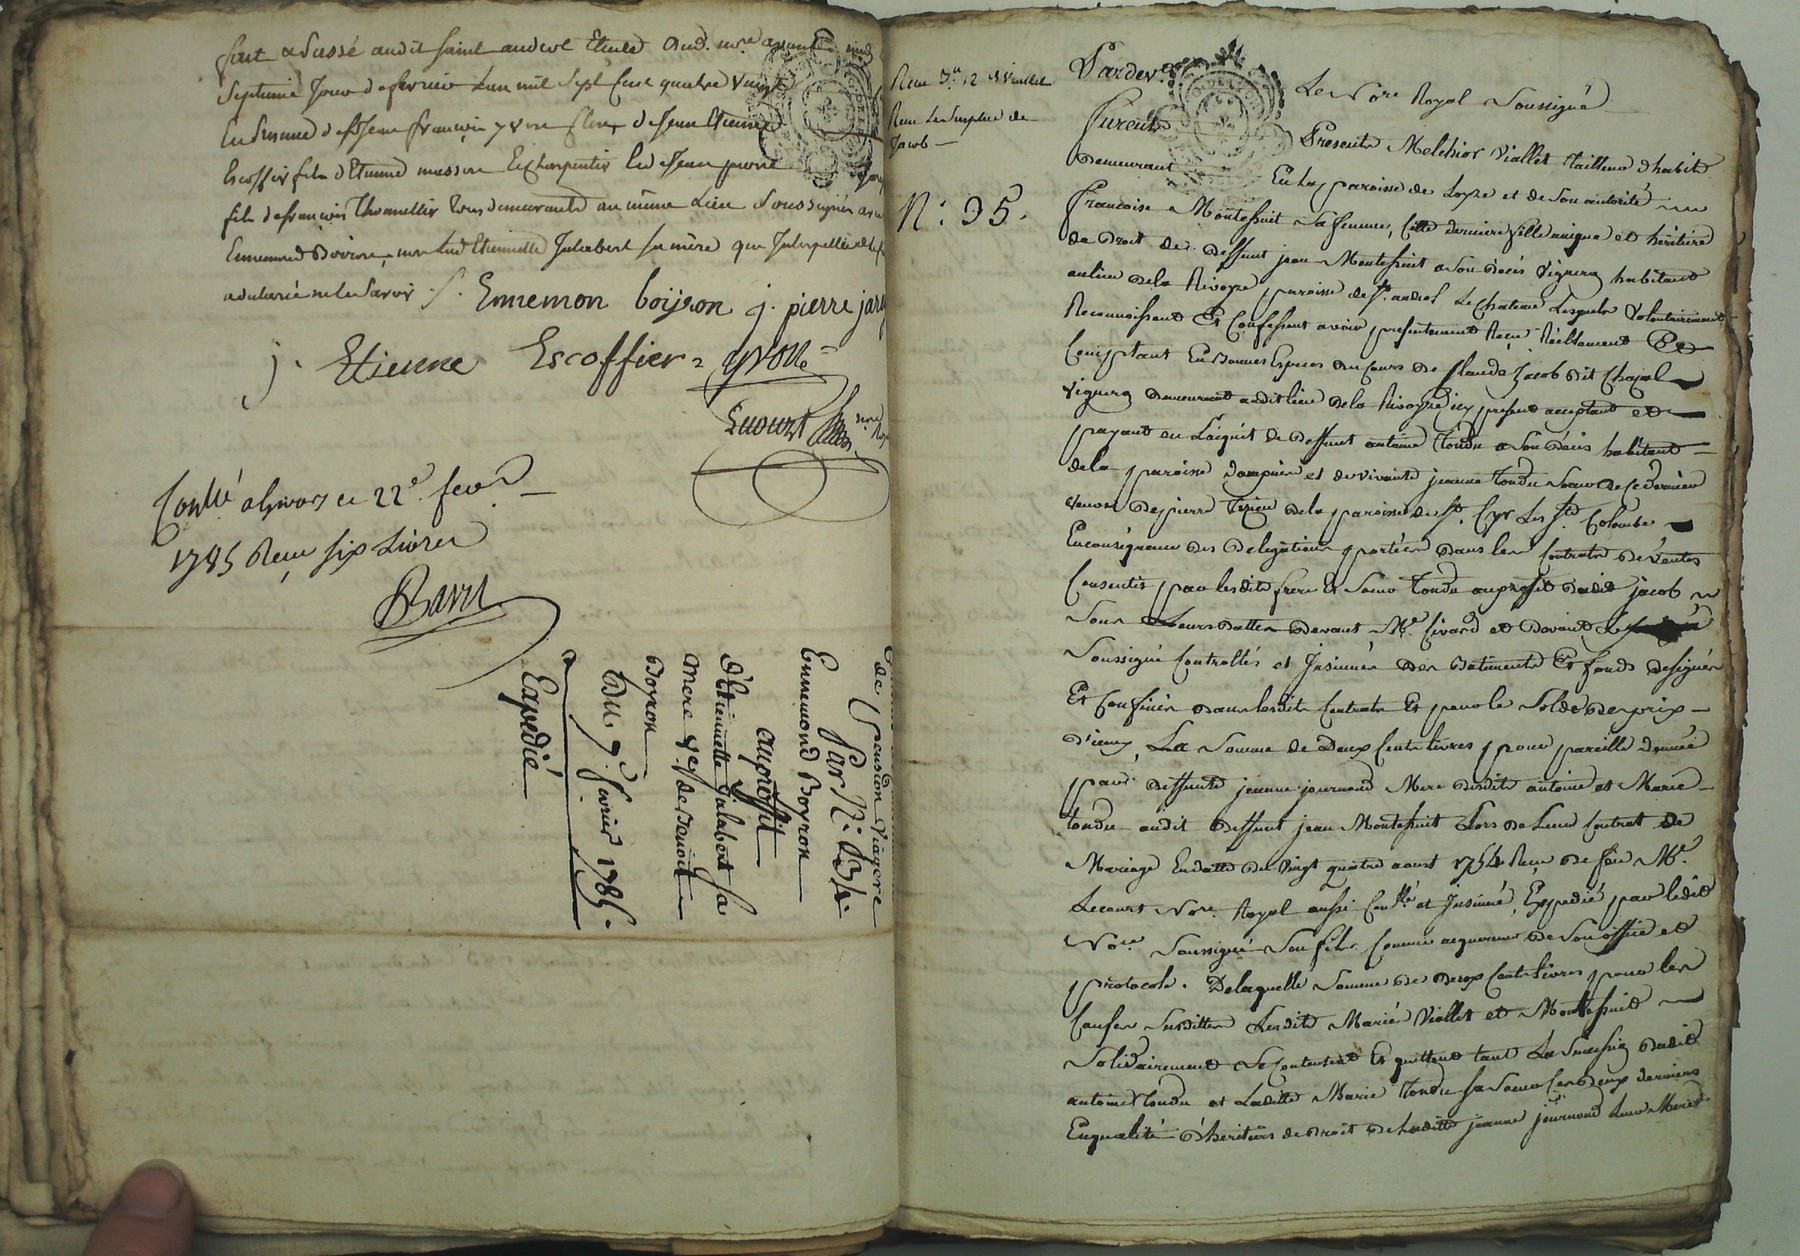 fait et passé audit saint andeol Etude dud. nre avant midi
septieme Jour de fevrier L'an mil sept Cent quatre vingt
En presence de Sr Jean françois yvon de Jean Etienne
Escoffier fils d'Etienne masson et charpentier Et de Jean pierre
fils de françois Thomellier tous demeurants au même Lieu soussignés avec
Ennemond Boiron, non Lad. Etiennette Jalabert sa mère qui Interpellée
a declaré ne le savoir
Ennemon boijron j. pierre
j. Etienne Escoffier yvon
Lecourt nore
Conllé a givors ce 22e fevr
1785 Reçu six Livres
Bavet
de pension viagere
Par N: 34.
Ennemond Boyron
auproffit
d'Etiennette Jalabert sa
mere & ve de Benoit
Boyron
Du 7e fevrier 1785.
Expedié
N: 35.
Jacob
Pardevt Le Nore Royal Soussigné
furent Presents Melchior Viallet tailleur d'habits
demeurant En La paroisse de Loyre et de son autorité
francoise Montessuit sa femme, cette derniere fille unique et héritiere
de droit de deffunt jean Montessuit a son décès vigneron habitant
au lieu dela Rivoyre paroisse de St. andeol Le Chateau Lesquels volontairement
Reconnoissent Et Confessent avoir presentement Reçu Réellement Et
Comptant En bonnes Especes du Cours de Claude Jacob dit Chapel
vigneron demeurant audit lieu dela Rivoyre icy present acceptant et
payant en L'acquit de deffunt antoine tondu a son décès habitant
dela paroisse dampuis et de vivante jeanne tondu soeur de ce dernier
veuve de pierre dela paroisse de St. Cyr Les Ste. Colombe
En conséquence des delegations portées dans les Contrats de ventes
Consentis par lesdits frere Et soeur tondu au profit dudit jacob
sous Leurs dattes devant Me. Civard et devant Le
soussigné Controllés et Insinués des batiments Et fonds designés
Et Confinés dans lesdits Contrats Et pour le solde du prix
d'iceux, La somme de deux Cents livres pour pareille donnée
par deffunte jeanne journoud Mere desdits antoine et Marie
tondu audit deffunt jean Montessuit Lors de Leur Contrat de
Mariage En datte du vingt quatre aoust 1754 Reçu de feu Me.
Lecourt Nore Royal aussi Conllé et Insinué, Expedié par ledit
Nore soussigné son fils Comme acquereur de son office et
protocole. De laquelle somme de deux Cents livres pour les
Causes susdittes Lesdits Mariés Viallet et Montessuit
solidairement se Contentent Et quittent tant La succession dudit
antoine tondu et Laditte Marie tondu sa soeur Ces deux derniers
En qualité d'héritiers de droit de Laditte jeanne journoud Leur Mere